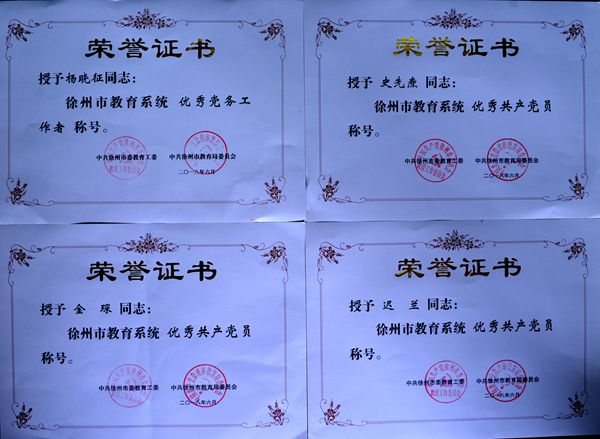 荣誉证书
授予杨晓征同志：
徐州市教育系统 优秀党务工
作者 称号。
中共徐州市委教育工委 中共徐州市教育局委员会
二〇一八年六月
荣誉证书
授予 史先焘 同志：
徐州市教育系统 优秀共产党员
称号。
中共徐州市委教育工委 中共徐州市教育局委员会
二〇一八年六月
荣誉证书
授予 金 琛 同志：
徐州市教育系统 优秀共产党员
称号。
中共徐州市委教育工委 中共徐州市教育局委员会
二〇一八年六月
荣誉证书
授予 迟 兰 同志：
徐州市教育系统 优秀共产党员
称号。
中共徐州市委教育工委 中共徐州市教育局委员会
二〇一八年六月